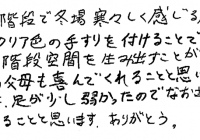 階段で冬場寒々しく感じる
クリア色の手すりを付けることで
階段空間を生み出すことが
父母も喜んでくれることと思い
足が少し弱かったのでなおさ
ることと思います。ありがとう。